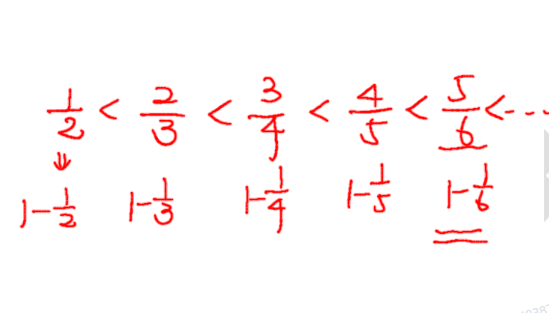 1/2 < 2/3 < 3/4 < 4/5 < 5/6 < ...
⇓
1-1/2 1-1/3 1-1/4 1-1/5 1-1/6